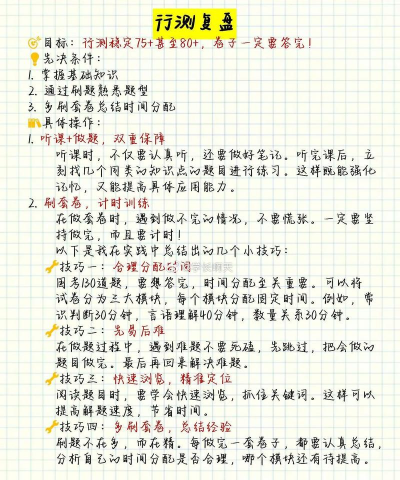 行测复盘
🎯目标：行测稳定75+甚至80+，卷子一定要答完！
💡先决条件：
1. 掌握基础知识
2. 通过刷题熟悉题型
3. 多刷套卷总结时间分配
📙具体操作：
1. 听课+做题，双重保障
听课时，不仅要认真听，还要做好笔记。听完课后，立
刻找几个同类的知识点的题目进行练习。这样既能强化
记忆，又能提高具体应用能力。
2. 刷套卷，计时训练
在做套卷时，遇到做不完的情况，不要慌张。一定要坚
持做完，而且要计时！
以下是我在实践中总结出的几个小技巧：
🔧技巧一：合理分配时间
国考130道题，要想答完，时间分配至关重要。可以将
试卷分为三大模块，每个模块分配固定时间。例如，常
识判断30分钟，言语理解40分钟，数量关系30分钟。
🔧技巧二：先易后难
在做题过程中，遇到难题不要死磕，先跳过，把会做的
题目做完。最后再回来解决难题。
🔧技巧三：快速浏览，精准定位
阅读题目时，要学会快速浏览，抓住关键词。这样可以
提高解题速度，节省时间。
🔧技巧四：多刷套卷，总结经验
刷题不在多，而在精。每做完一套卷子，都要认真总结，
分析自己的时间分配是否合理，哪个模块还有待提高。